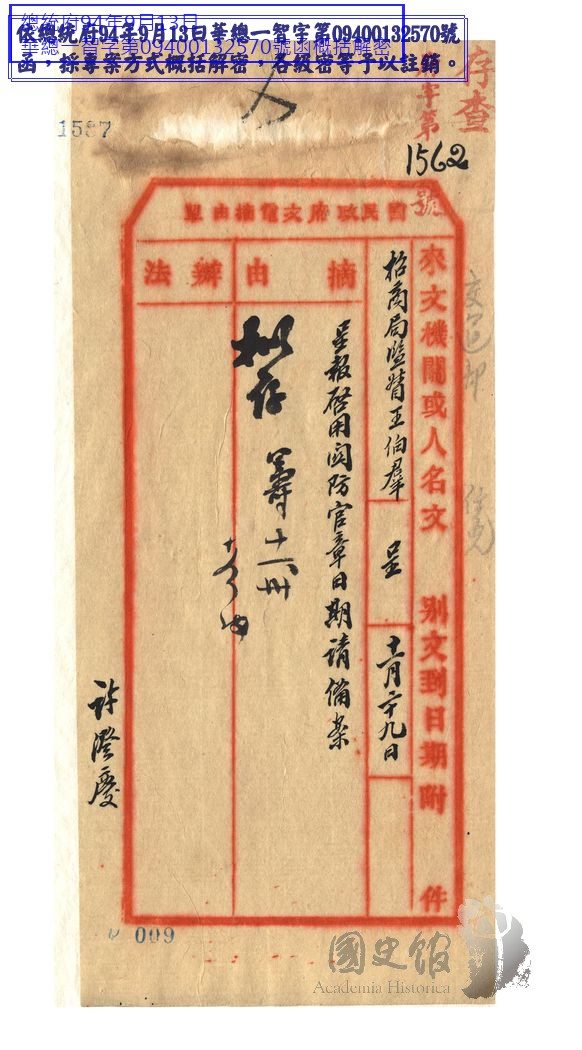 總統府94年9月13日
華總一智字第09400132570號函概括解密
依總統府94年9月13日華總一智字第09400132570號
函，採專案方式概括解密，各級密等予以註銷。
存查
1537
字第
1562
號
國民政府文電摘由單
來文機關或人名
文別
文到日期
附件
招商局監督王伯群
呈
十一月二十九日
摘由
辦法
呈報啓用関防官章日期請備案
擬存
許澄慶
009
國史館
Academia Historica